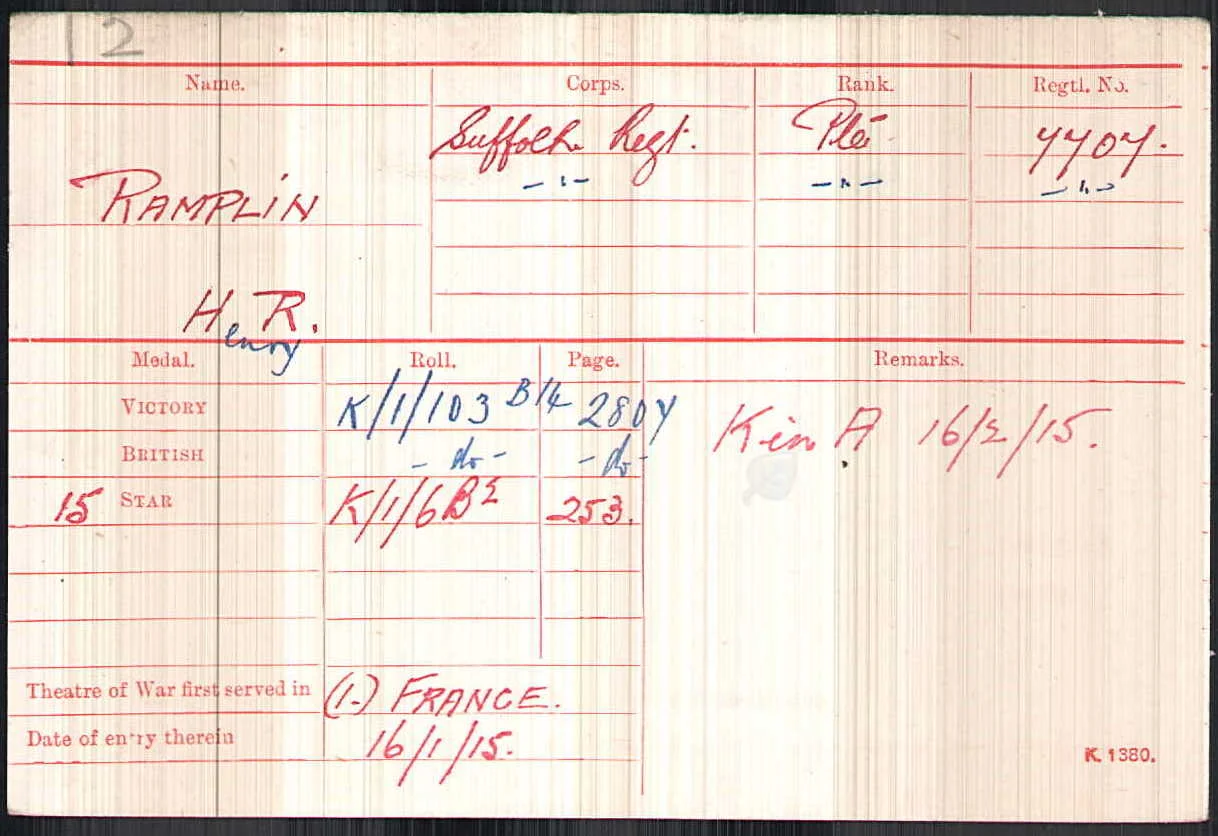 12
Name. Corps. Rank. Regtl. No.
Suffolk Regt. Pte 7707.
-"- -"- -"-
RAMPLIN
H. R.
enry
Medal. Roll. Page. Remarks.
VICTORY K/1/103 B14 2807 K in A 16/2/15.
BRITISH -do- -do-
15 STAR K/1/6B2 253.
Theatre of War first served in (1.) FRANCE.
Date of entry therein 16/1/15.
K. 1380.